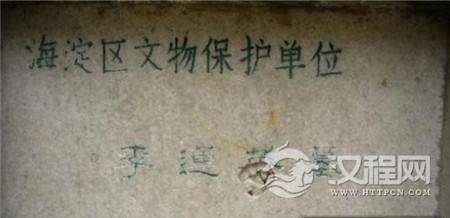 海淀区文物保护单位
李莲
汉程网
WWW.HTTPCN.COM